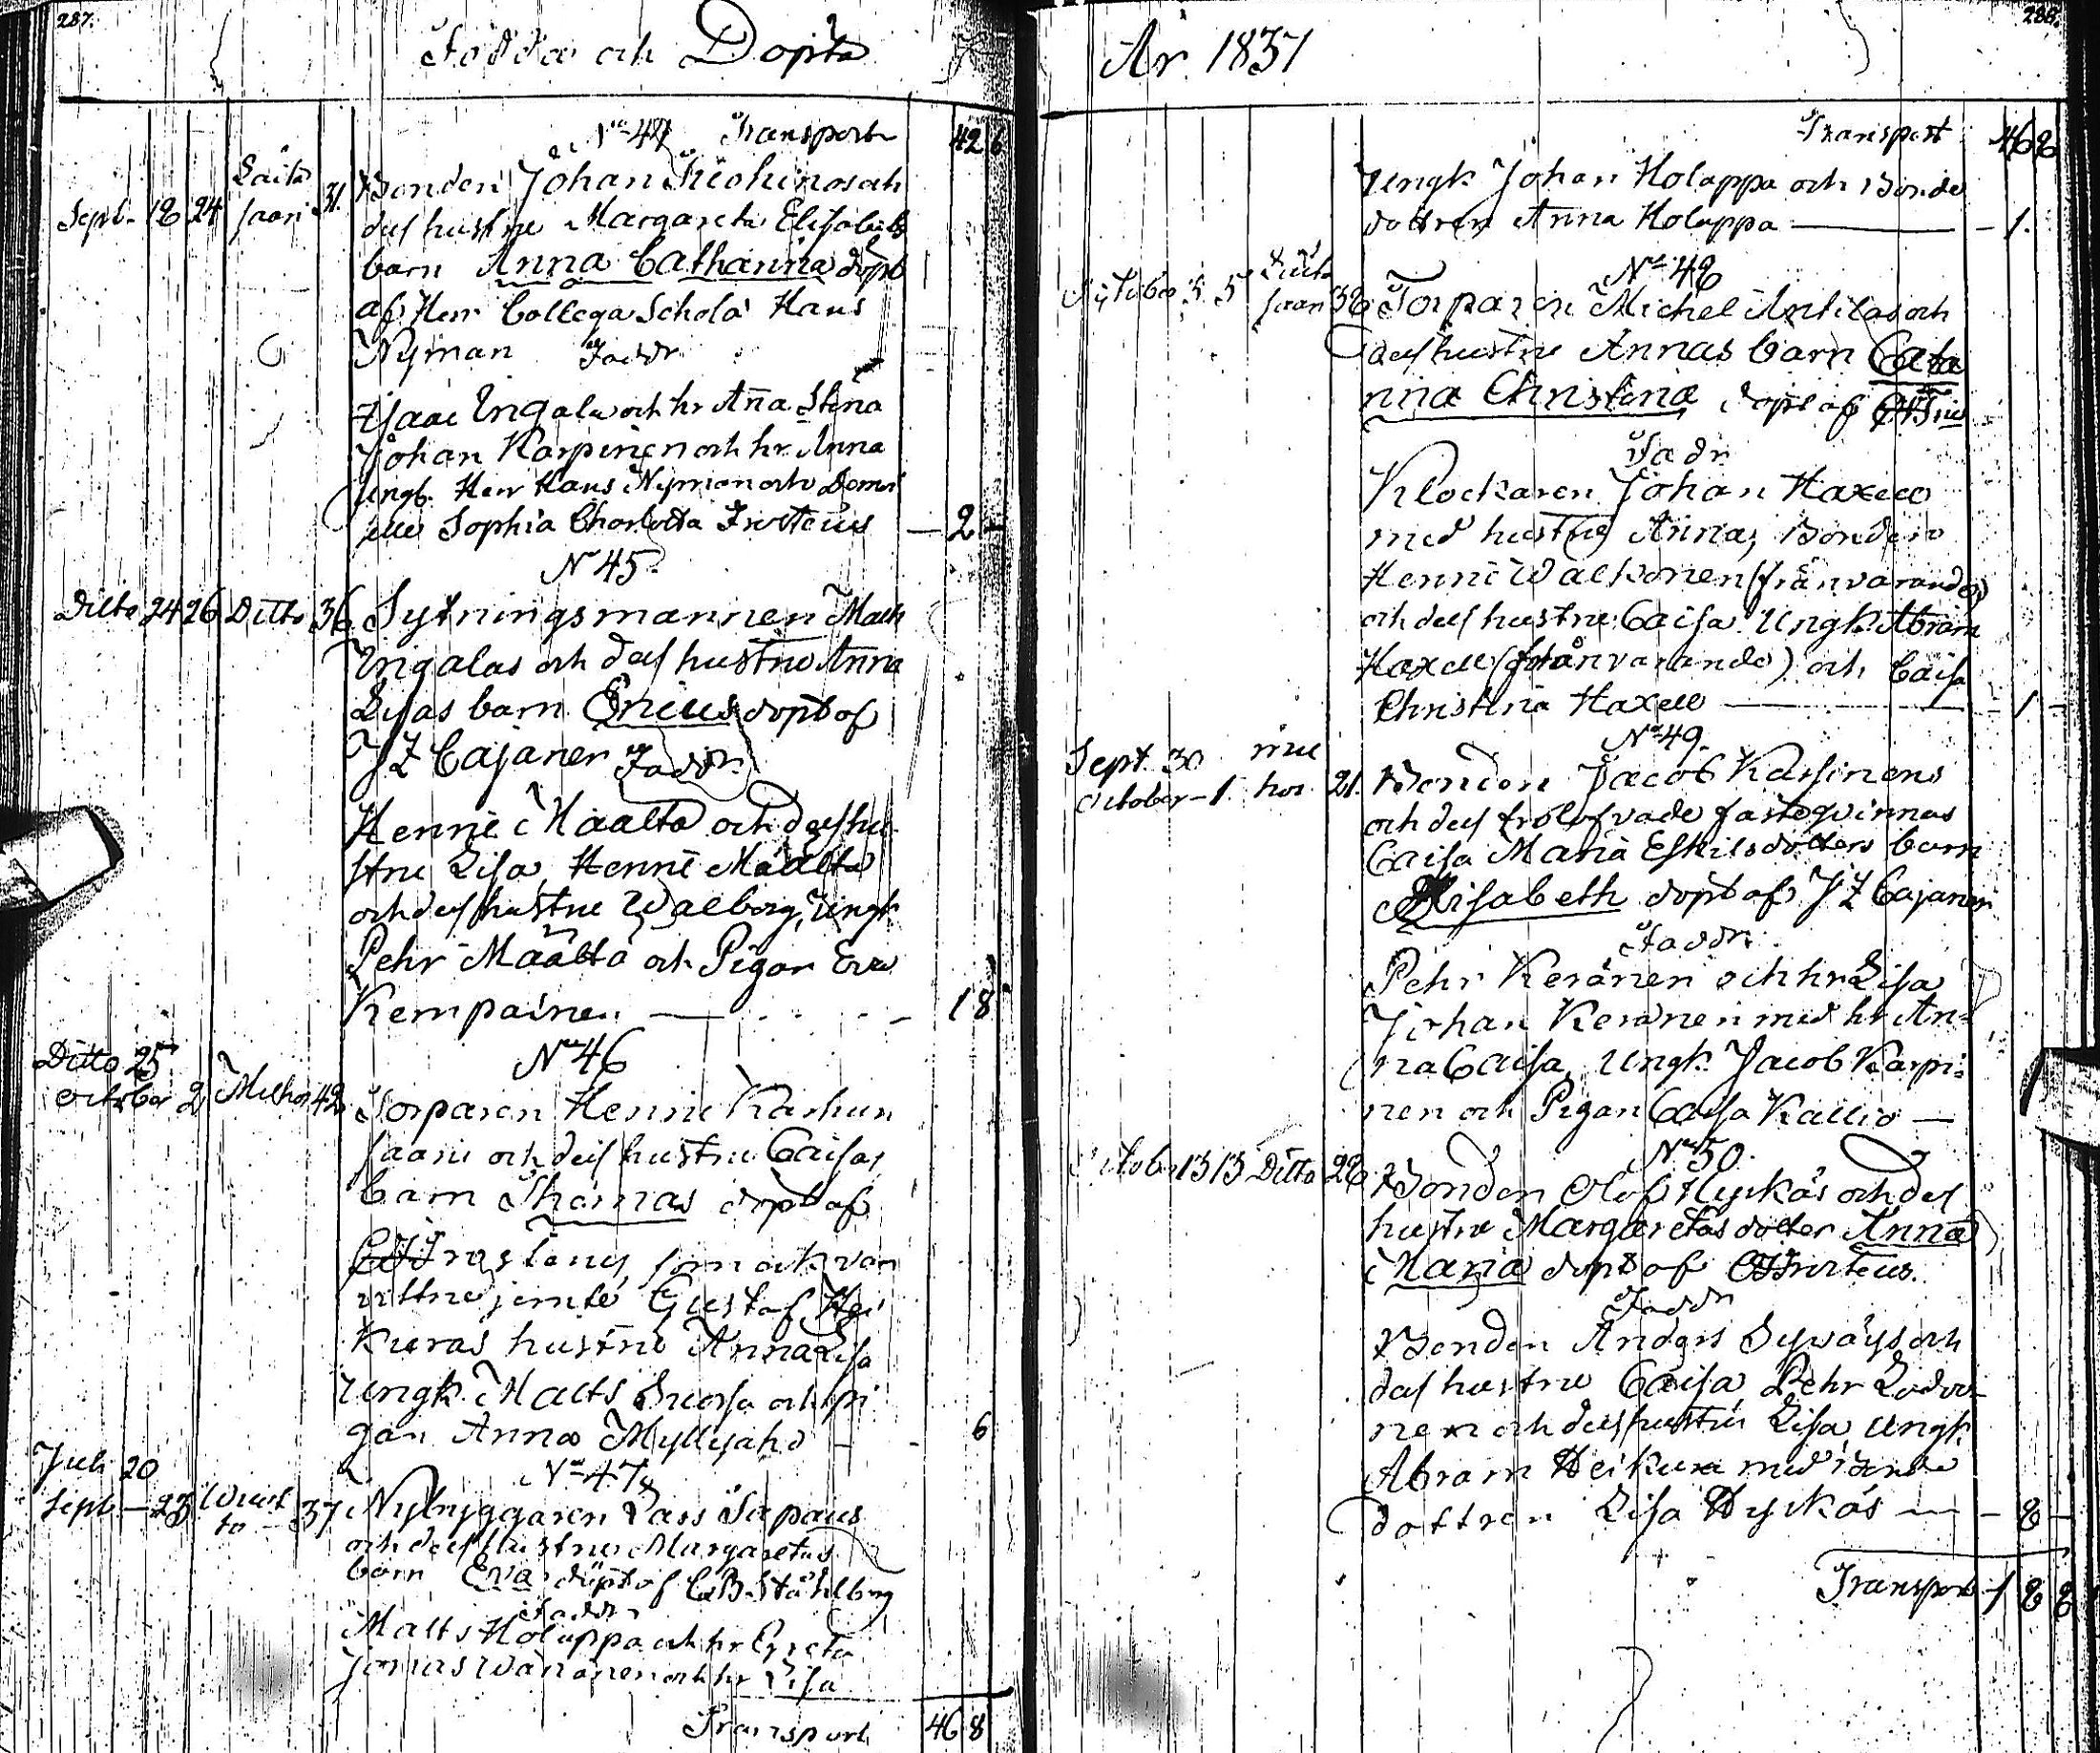 287.
Födde och Döpta
No 44 Transport 42 6
Säitä
Sept. 18 24 saari 31. Bonden Johan och
dess hustru Margareta Elisabets
barn Anna Catharina döpt
af Herr Collega Schola Hans
Nyman Faddr
Isaac Ingala och hr Anna Stina
Johan Karpinen och hr Anna
Ungk. Herr Hans Nyman och Demoi
selle Sophia Charlotta Frosterus — 2 —
No 45.
Ditto 24 26 Ditto 36 Sytningsmannen Matts
Ingalas och dess hustru Anna
Lisas barn Ericus döpt af
J Z Cajaner Faddr.
Henric Määttä och dess hu-
stru Lisa, Henric Määttä
och dess hustru Walborg, Ungk
Pehr Määttä och Pigan Eva
Kempainen — 18
No 46
Ditto 25
October 2 42 Torparen Henric Karhun
saari och dess hustru Caisas
barn Thomas döpt af
Frosterus, som ock var
vittne jemte Gustaf Hei
kuras hustru Anna Lisa
Ungk. Matts och pi
gan Anna Myllyaho — 6
No 47
Juli 20
Sept — 23 37 Nybyggaren Lars
och dess Hustrus Margaretas
barn Eva döpt af C B Ståhlberg
Faddr
Matts Holappa och hr Greta
Jonas Wänänen och hr Lisa
Transport 46 8
288.
År 1837
Transport 46 8
Ungk Johan Holappa och Bonde
dottren Anna Holappa — 1.
No 48
October 5 5 Säitä
saari 38 Torparen Michel Anttilas och
dess hustru Annas barn Cata
rina Christina döpt af
Fadr
Klockaren Johan Haxell
med hustru Anna, Bonden
Henric Walkonen (frånvarande)
och dess hustru Caisa Ungk. Abram
Haxell (frånvarande) och Caisa
Christina Haxell — 1 —
No 49.
Sept. 30
October — 1. 21. Bonden Jacob Karpinens
och dess trolofvade fästeqvinnas
Caisa Maria Eskilsdotters barn
Elisabeth döpt af J Z Cajaner
Faddr.
Pehr Keränen och hr Lisa
Johan Keränen med hr An-
na Caisa, Ungk. Jacob Karpi-
nen och Pigan Caisa Kallio —
No 50.
October 13 15 Ditto 28 Bonden Olof Hyrkäs och dess
hustru Margaretas dotter Anna
Maria döpt af Frosterus.
Faddr
Bonden Anders och
dess hustru Caisa, Pehr
nen och dess hustru Lisa, Ungk.
Abram Heikura med Bonde
dottren Lisa Hyrkäs — 8 —
Transport 1 8 8